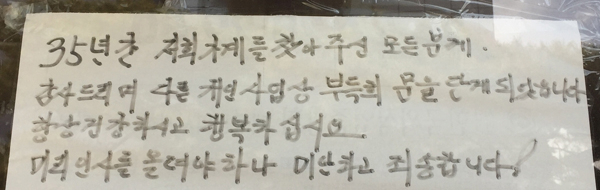 35년간 저희 가게를 찾아 주신 모든분께.
감사드리며 다른 개인사업상 부득희 문을 닫게 되었습니다
항상건강하시고 행복하십시요
미리인사를 올려야하나 미안하고 죄송합니다!